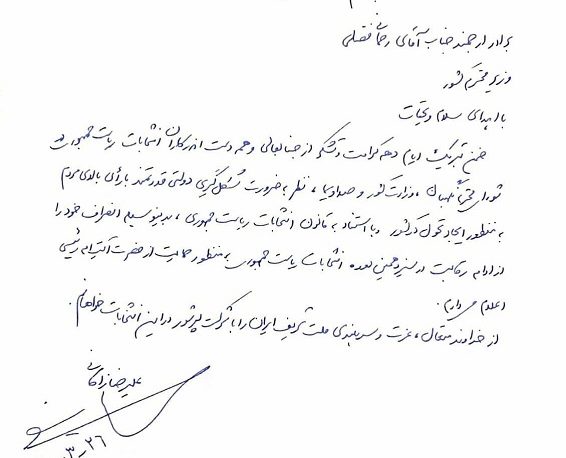 برادر ارجمند جناب آقای رحمانی فضلی
وزیر محترم کشور
با اهدای سلام و تحیات
ضمن تبریک ایام دهه کرامت و تشکر از جنابعالی و همه دست اندرکاران انتخابات ریاست جمهوری در
شورای محترم نگهبان، وزارت کشور و صدا و سیما، نظر به ضرورت شکل گیری دولتی قدرتمند با رأی بالای مردم
به منظور ایجاد تحول در کشور و با استناد به قانون انتخابات ریاست جمهوری، بدینوسیله انصراف خود را
از ادامه رقابت در سیزدهمین دوره انتخابات ریاست جمهوری به منظور حمایت از حضرت آیت اله رئیسی
اعلام می دارم.
از خداوند متعال، عزت و سربلندی ملت شریف ایران را با شرکت پرشور در این انتخابات خواهانم.
علیرضا زاکانی
۳_۲۶